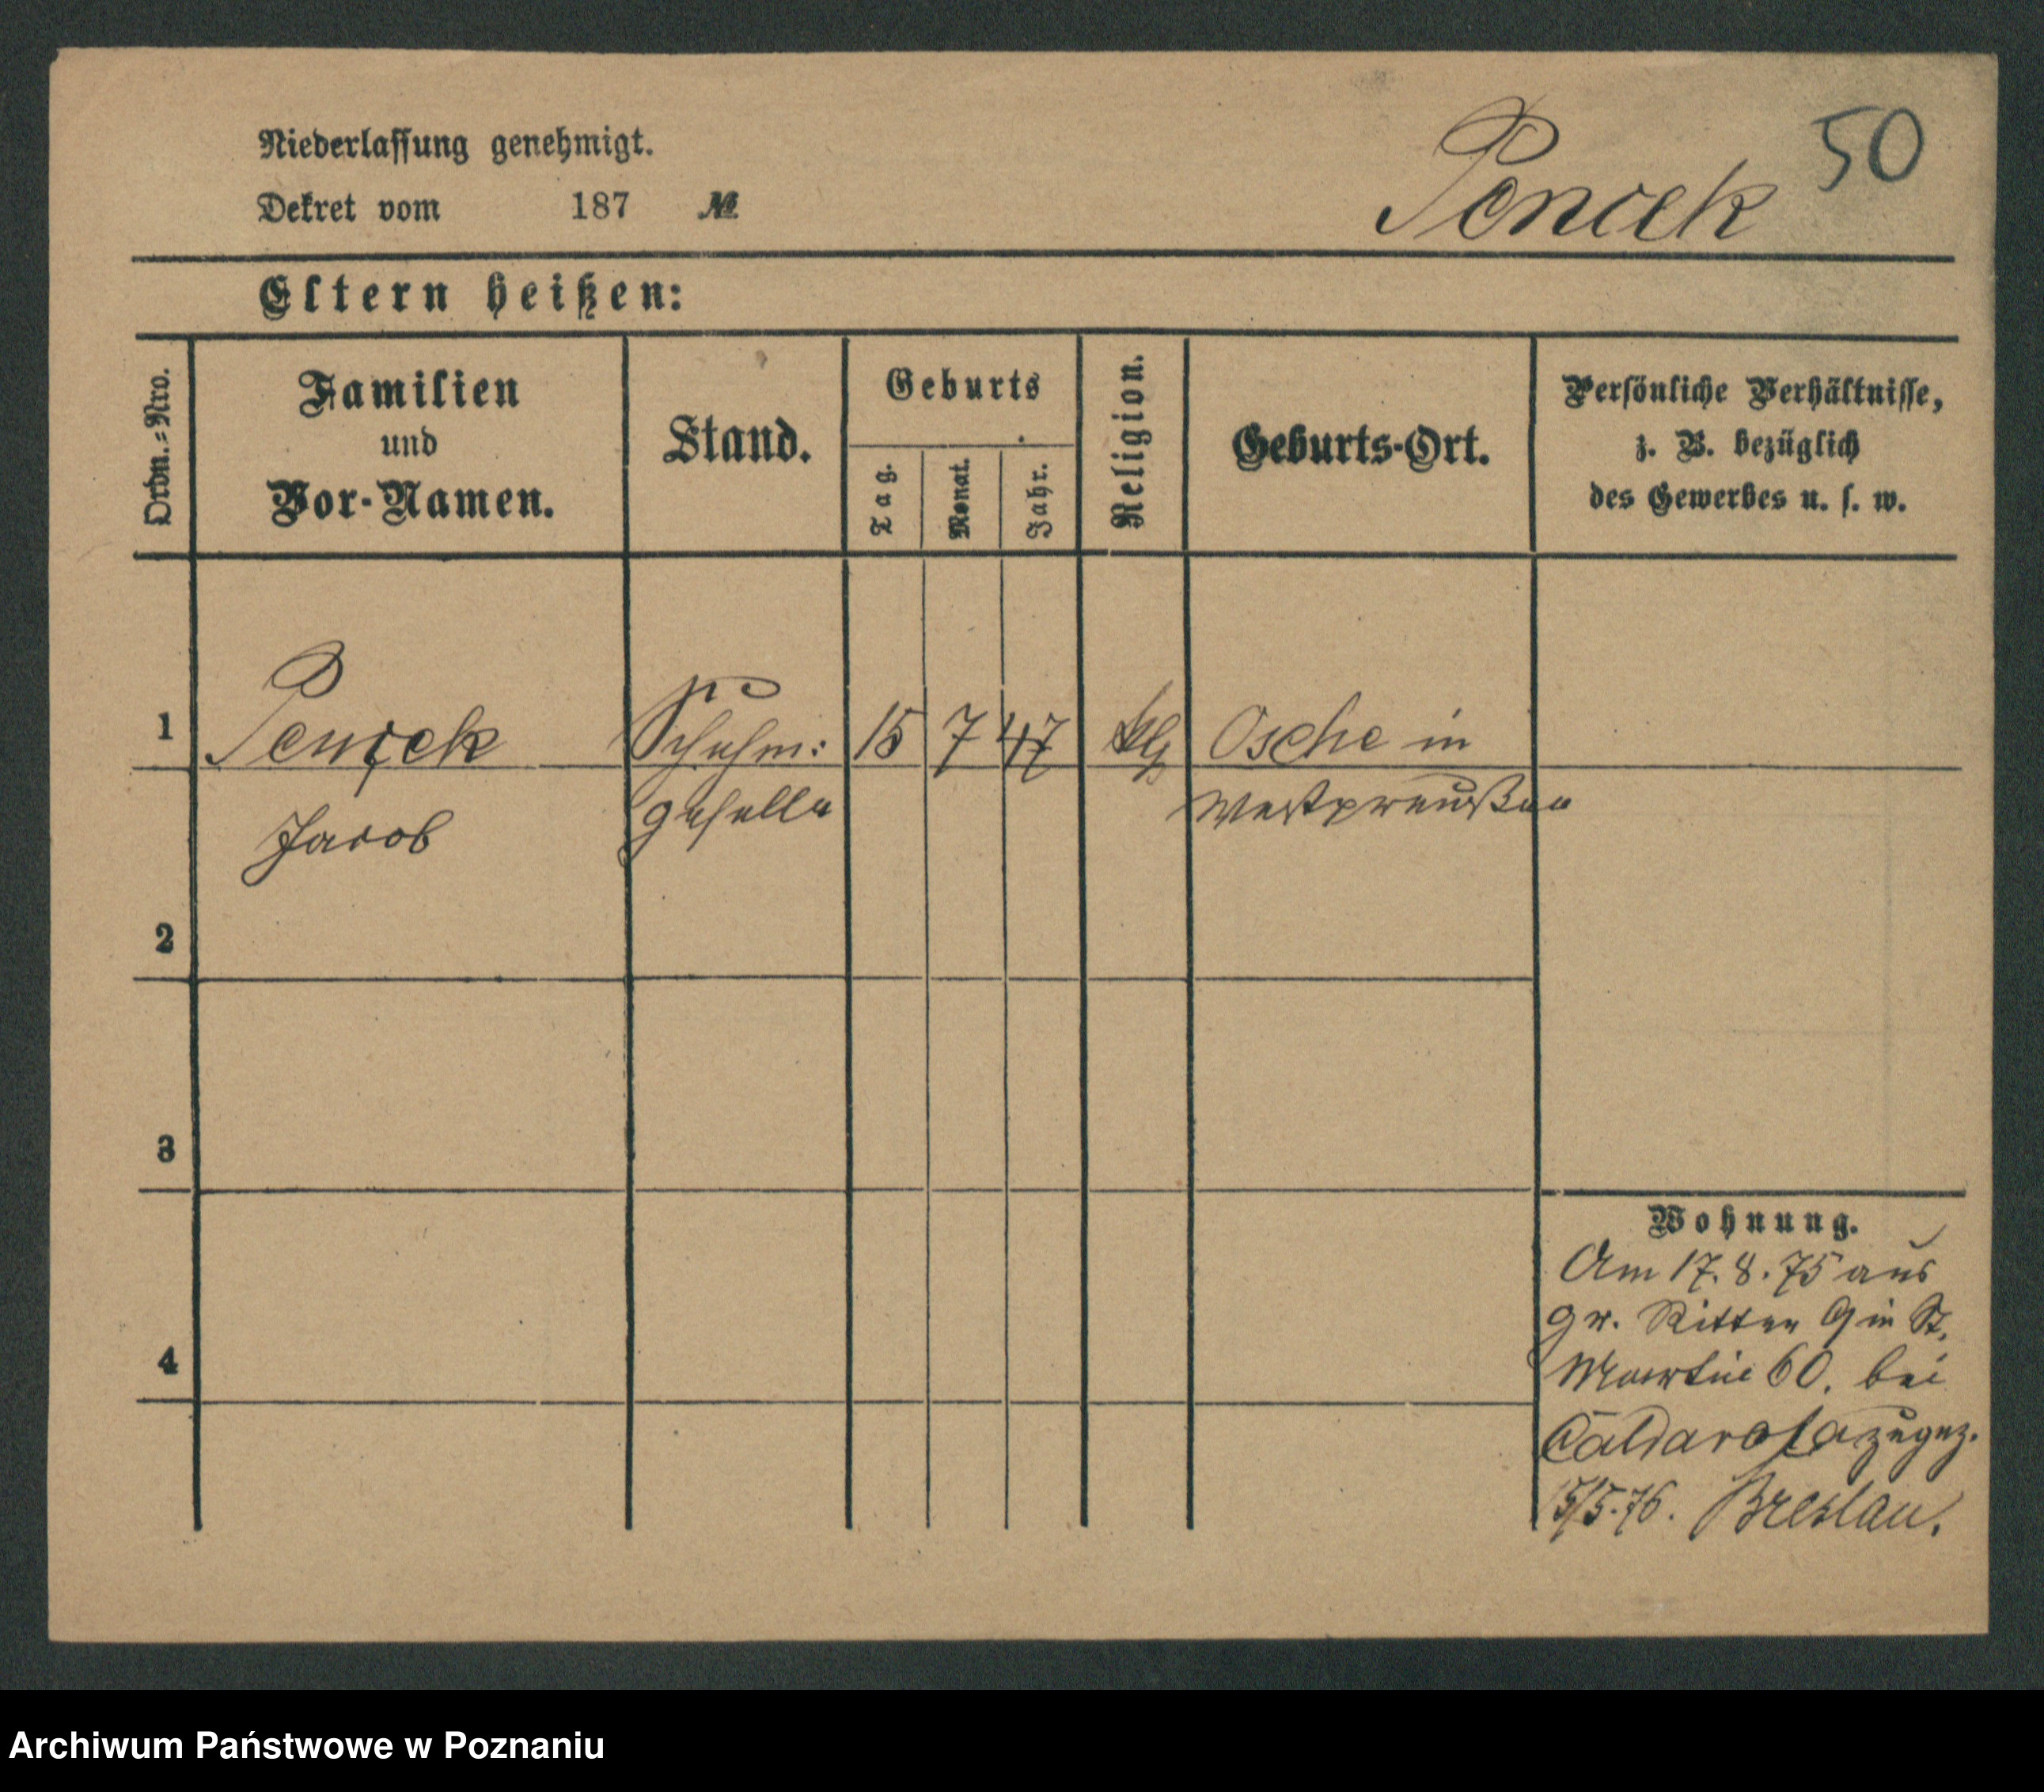 Niederlassung genehmigt.
Dekret vom 187 №
Pencek 50
Eltern heißen:
Ordn.=Nro.
Familien
und
Vor-Namen.
Stand.
Geburts
Tag.
Monat.
Jahr.
Religion.
Geburts-Ort.
Persönliche Verhältnisse,
z. B. bezüglich
des Gewerbes u. s. w.
1 Schuhm: 15 7 47 Osche in
Jacob geselle Westpreußen
2
3
4
Wohnung.
Am 17. 8. 75 aus
gr. Ritter 9 in St.
Martin 60. bei
zugez.
15/5.76. Breslau.
Archiwum Państwowe w Poznaniu